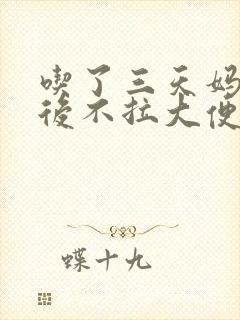 喫了三天媽
後不拉大便
蝶十九